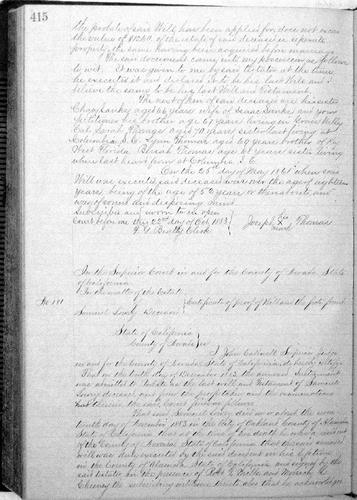 415
the probate of said Will, have been applied for, does not exceed
the value of $1250, of the estate of said deceased, is separate
property, the same having been acquired before marriage
The said document came into my possession as follows
to wit. It was given to me by said testator at the time
he executed it and declared it to be his last Will and I
believe the same to be his last Will and Testament.
The next of kin of said deceased are his sister
aged 64 years wife of Isaac and your
Petitioner his brother age 67 years living in
Thomas aged 70 years sister last living at
Columbia S. C. Thomas aged 69 years brother of Key
West Florida, Thomas age 61 years sister living
when last heard from at Columbia S. C.
On the 25th day of May 1868 when said
Will was executed said deceased was over the age of eighteen
years being of the age of 50 years or thereabouts and
was of sound and disposing mind.
Subscribed and sworn to in open
Court before me this 22nd day of Oct 1883
Joseph his X mark Thomas
J. G. Beatty Clerk
In the Superior Court in and for the County of Nevada State
of California
In the matter of the Estate
No 181
Certificate of Proof of Will and the facts found
Samuel Lovey Deceased
State of California
County of Nevada ss
I John Caldwell Superior Judge
in and for the County of Nevada State of California do hereby certify
That on the tenth day of December 1883 the annexed Instrument
was admitted to Probate as the last will and Testament of Samuel
Lovey deceased and from the proofs taken and the examinations
had therein the said Court finds as follows
That said Samuel Lovey died on or about the
day of November 1883 in the City of Oakland County of Alameda
State of California that at the time of his death he was a resident
of the County of Nevada State of California that the said annexed
will was duly executed by the said decedent in his lifetime
in the County of Alameda State of California and signed by the
said testator in the presence of and
Cheney the subscribing witnesses thereto also that he acknowledged